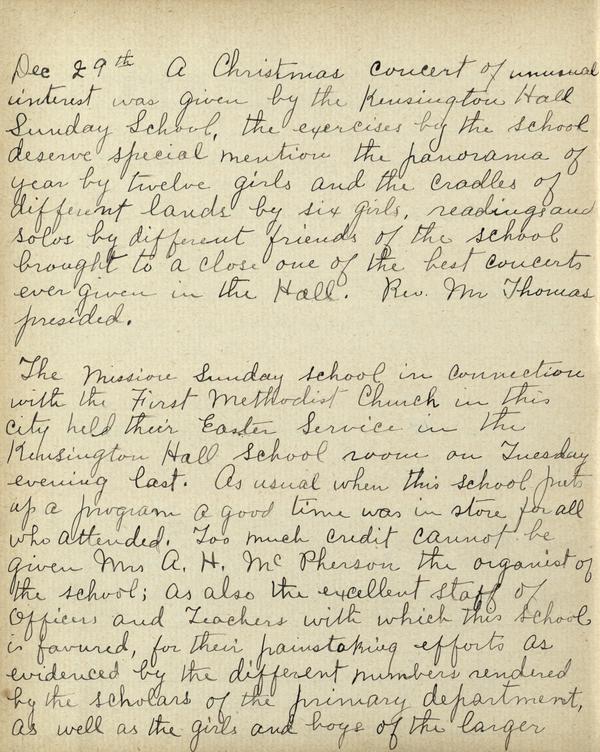 Dec 29th A Christmas concert of unusual
interest was given by the Kensington Hall
Sunday School, the exercises by the school
deserve special mention the panorama of
year by twelve girls and the cradles of
different lands by six girls, readings and
solos by different friends of the school
brought to a close one of the best concerts
ever given in the Hall. Rev. Mr Thomas
presided.

The Mission Sunday school in connection
with the First Methodist Church in this
city held their Easter Service in the
Kensington Hall School room on Tuesday
evening last. As usual when this school puts
up a program a good time was in store for all
who attended. Too much credit cannot be
given Mrs A. H. Mc Pherson the organist of
the school; as also the excellent staff of
Officers and Teachers with which this School
is favoured, for their painstaking efforts as
evidenced by the different numbers rendered
by the scholars of the primary department,
as well as the girls and boys of the larger